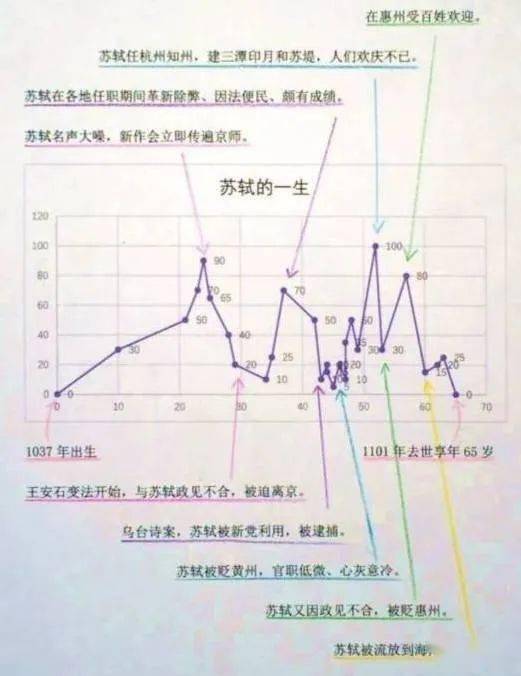 在惠州受百姓欢迎。
苏轼任杭州知州，建三潭印月和苏堤，人们欢庆不已。
苏轼在各地任职期间革新除弊、因法便民、颇有成绩。
苏轼名声大噪，新作会立即传遍京师。
苏轼的一生
120
100
80
60
40
20
0
0
30
50
70
90
65
40
20
10
25
70
50
10
20
50
30
100
30
80
15
20
25
0
0
10
20
30
40
50
60
70
1037 年出生
1101 年去世享年 65 岁
王安石变法开始，与苏轼政见不合，被迫离京。
乌台诗案，苏轼被新党利用，被逮捕。
苏轼被贬黄州，官职低微、心灰意冷。
苏轼又因政见不合，被贬惠州。
苏轼被流放到海